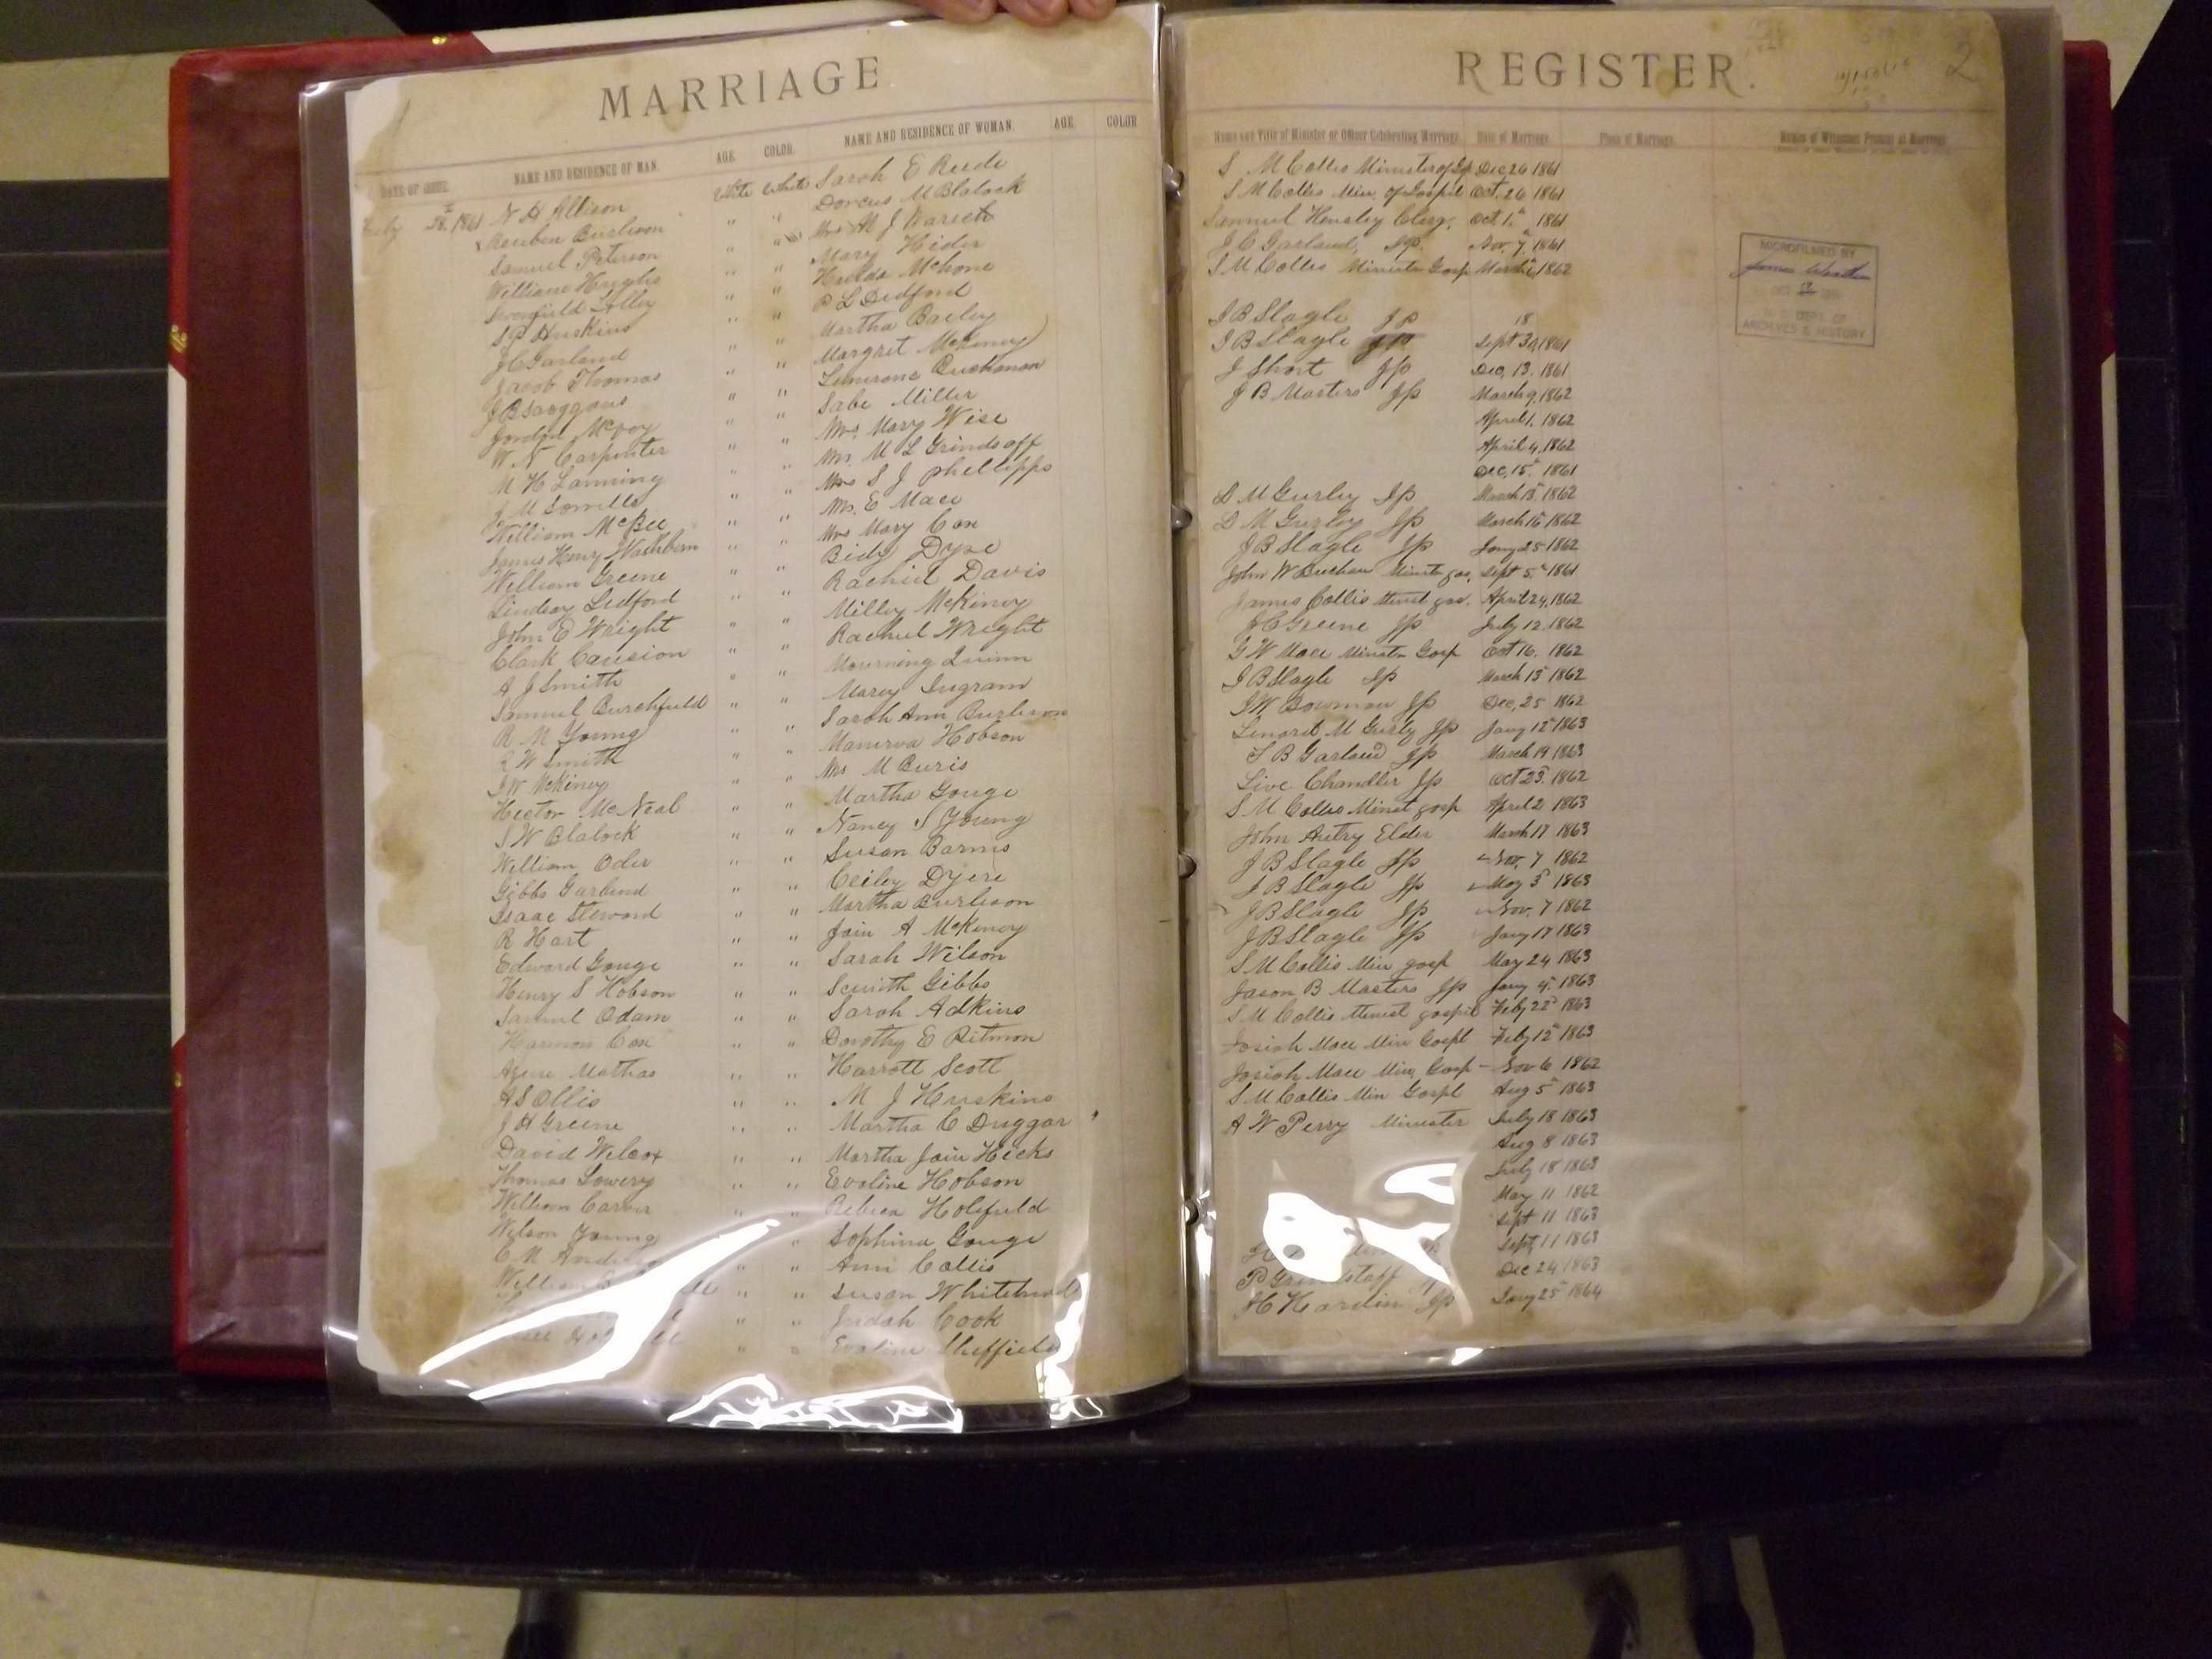 MARRIAGE
DATE OF ISSUE. NAME AND RESIDENCE OF MAN. AGE. COLOR. NAME AND RESIDENCE OF WOMAN. AGE. COLOR
28, 1861 N H Allison White White Sarah E Reede
Reuben Burlison " " Dorcus M Blalock
Samuel Peterson " " Mrs M J
William Hughs " " Mary Hider
" " Hulda McHone
S P Huskins " " P L Ledford
J C Garland " " Martha Bailey
Jacob Thomas " " Margret McKiney
J B Scoggans " " Buchanan
Jordan McFoy " " Sabe Miller
W N Carpenter " " Mrs Mary Wise
M H Lanning " " Mrs. M L Grindsaff
J M " " Mrs S J Phellipps
William McBee " " Mrs. E Mace
James Henry Washburn " " Mrs Mary Cox
William Greene " " Bidy Dyre
Lindsay Ledford " " Rachiel Davis
John E Wright " " Milley McKiney
Clark " " Rachiel Wright
A J Smith " " Mourning Quinn
Samuel Burchfield " " Marey Ingram
R M Young " " Sarah Ann Burlison
R W Smith " " Manerva Hobson
J W McKiney " " Mrs M Buris
Hector McNeal " " Martha Gouge
S W Blalock " " Nancy S Young
William Oder " " Susan Barnes
Gibbs Garland " " Ceiley Dyere
Isaac Steward " " Martha Burlison
R Hart " " Jain A McKiney
Edward Gouge " " Sarah Wilson
Henry S Hobson " " Gibbs
Samuel Odam " " Sarah Adkins
Harmon Cox " " Dorothy E Pitmon
Mathas " " Harrott Scott
A S Ollis " " M J Huskins
J H Greene " " Martha C Duggar
David Wilcox " " Martha Jain Hicks
Thomas Lowery " " Evaline Hobson
William Carver " " Rebeca Holifield
Wilson Young " Sophina Gouge
C N " " Ann Collis
William " " Susan Whitehead
" " Judah Cook
" " Evaline Sheffield
REGISTER. 2
Name and Title of Minister or Officer Celebrating Marriage. Date of Marriage. Place of Marriage. Names of Witnesses Present at Marriage.
S M Collis Minister of Gp Dec 26 1861
S M Collis Min. of Gospel Oct. 26 1861
Samuel Hensley Clerg. Oct. 1. 1861
J C Garland, Jp. Nov. 7, 1861
S M Collis Minister Gosp March 6, 1862
MICROFILMED BY
OCT
DEPT. OF
ARCHIVES & HISTORY
J B Slagle Jp 18
J B Slagle JP Sept 30, 1861
J Short Jp Dec, 13. 1861
J B Masters Jp March 9, 1862
April 1, 1862
April 4, 1862
Dec, 15. 1861
L M Gurley Jp March 13, 1862
L M Gurley Jp March 16 1862
J B Slagle Jp Jany 25 1862
John W Buchan Minst gos, Sept 5. 1861
James Collis Minst gos. April 24, 1862
J C Greene Jp July 12. 1862
G W Mace Minstr Gosp Oct 16. 1862
J B Slagle Jp March 13 1862
J W Bowman Jp Dec, 25 1862
Linord M Gurly Jp Jany 12 1863
S B Garland Jp March 19 1863
Live Chandler Jp Oct 23. 1862
S M Collis Minst gosp April 2 1863
John Autry Elder March 17 1863
J B Slagle Jp Nov, 7 1862
J B Slagle Jp May 3 1863
J B Slagle Jp Nov. 7 1862
J B Slagle Jp Jany 17 1863
S M Collis Min gosp May 24 1863
Jason B Masters Jp Jany 4. 1863
S M Collis Minst gospel Feby 22 1863
Josiah Mace Min Gospl Feby 12 1863
Josiah Mace Min, Gosp - Nov 6 1862
S M Collis Min Gospl Aug 5 1863
A W Perry Minister July 18 1863
Aug 8 1863
July 18 1863
May 11 1862
Sept 11 1863
Sept, 11 1863
P Grindstaff Dec 24 1863
H Hardin Jp Jany 25 1864